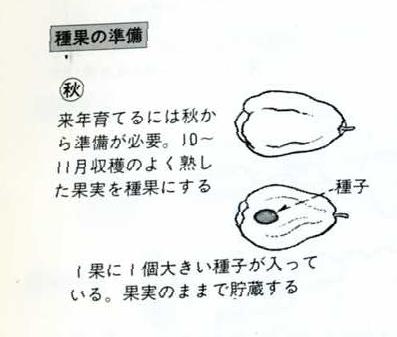 種果の準備
秋
来年育てるには秋か
ら準備が必要。10〜
11月収穫のよく熟し
た果実を種果にする
種子
1果に1個大きい種子が入って
いる。果実のままで貯蔵する